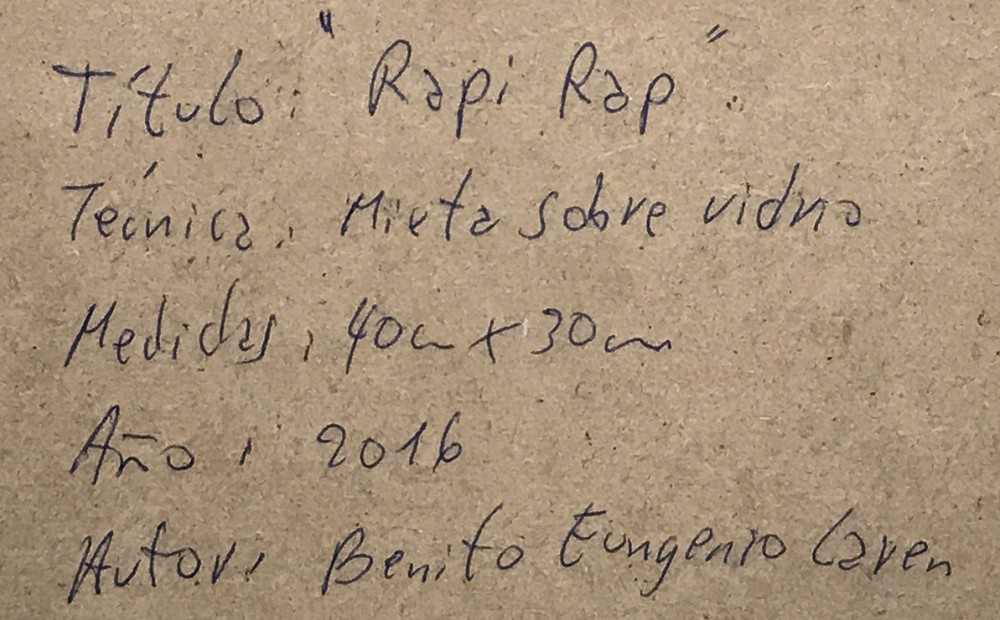 Título: "Rapi Rap".
Técnica: Mixta sobre vidrio
Medidas: 40cm x 30cm
Año: 2016
Autor: Benito Eungenio Laren